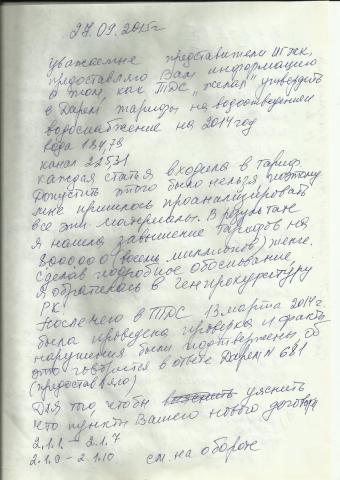 27.09.2015г
уважаемые представители ИГЖК,
предоставляю Вам информацию
о том, как ТДС "желал" утвердить
в Дарем тарифы на водоотведение
водоснабжение на 2014 год
вода 184,73
канал 22531
каждая статья входила в тариф
Допустить этого было нельзя поэтому
мне пришлось проанализировать
все эти материалы. В результате
я нашла завышение тарифов на
8000000 (восемь миллионов) тенге.
Сделав подробное обоснование
я обратилась в Генпрокуратуру
РК!
После чего в ТДС 13 марта 2014г.
была проведена проверка и факты
нарушения были подтверждены об
этом говорится в ответе Дарем N 681
(предоставляю)
Для того, чтобы уяснить
что пункты Вашего нового договора
2.1.1 - 2.1.7
2.1.9 - 2.1.10 см. на обороте